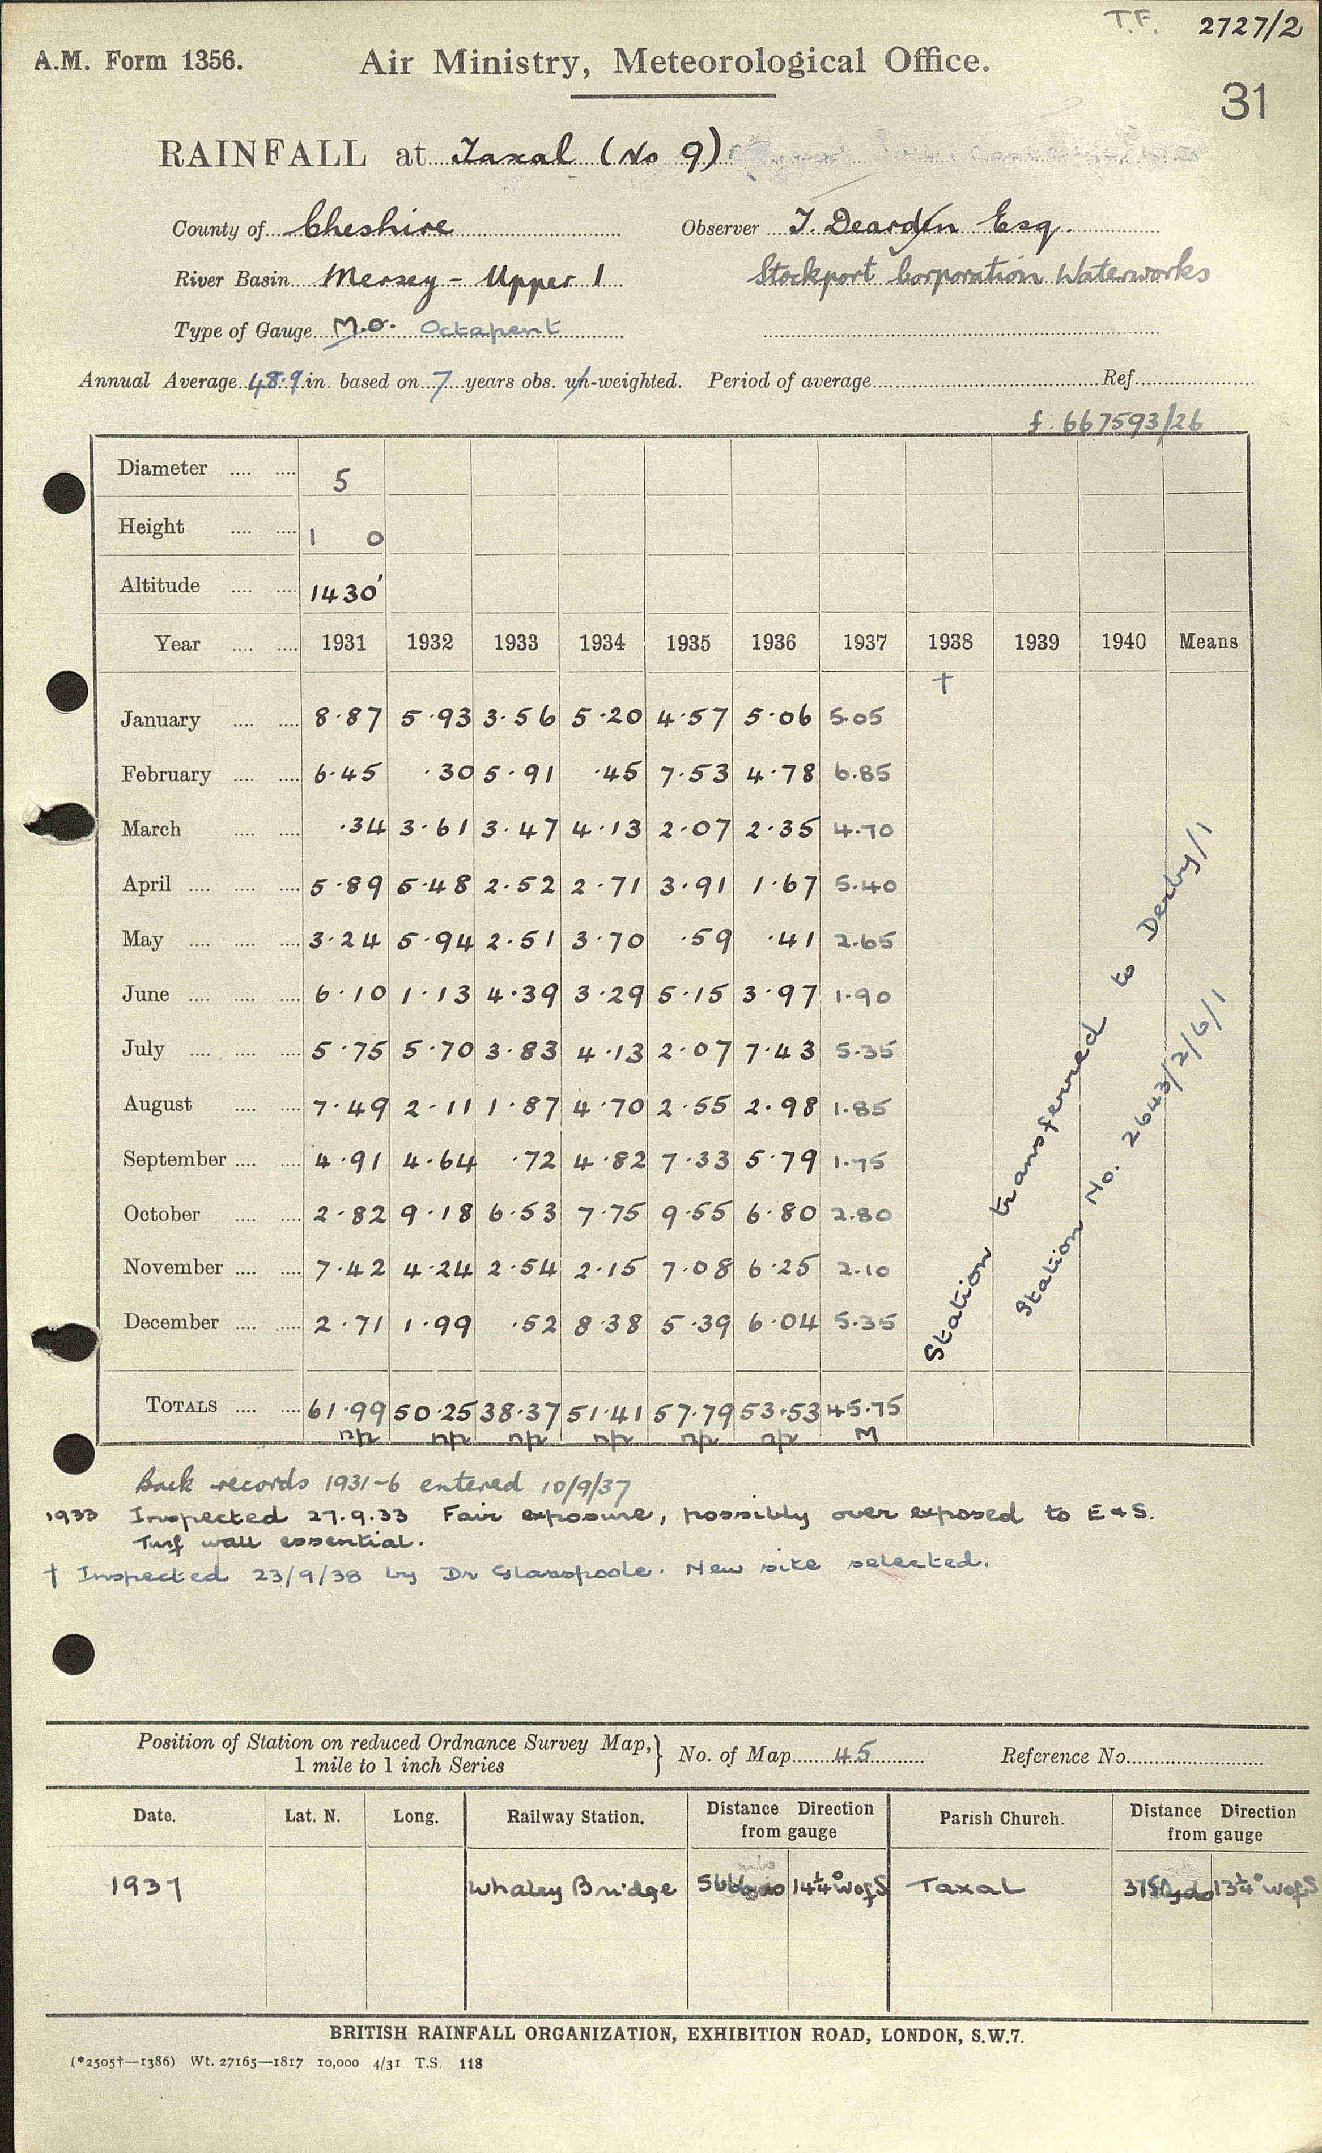 T.F. 2727/2
A.M. Form 1356. Air Ministry, Meteorological Office.
31
RAINFALL at Taxal (No 9)
County of Cheshire Observer T. Dearden Esq.
River Basin Mersey - Upper 1 Stockport Corporation Waterworks
Type of Gauge M.O. Octapent
Annual Average 48.9 in. based on 7 years obs. un-weighted. Period of average Ref.
f. 667593/26
Diameter .... .... 5
Height .... .... 1 0
Altitude .... .... 1430'
Year .... .... 1931 1932 1933 1934 1935 1936 1937 1938 1939 1940 Means
†
January .... .... 8.87 5.93 3.56 5.20 4.57 5.06 5.05
February .... .... 6.45 .30 5.91 .45 7.53 4.78 6.85
March .... .... .34 3.61 3.47 4.13 2.07 2.35 4.70
April .... .... .... 5.89 5.48 2.52 2.71 3.91 1.67 5.40
May .... .... .... 3.24 5.94 2.51 3.70 .59 .41 2.65
June .... .... .... 6.10 1.13 4.39 3.29 5.15 3.97 1.90
July .... .... .... 5.75 5.70 3.83 4.13 2.07 7.43 5.35
August .... .... 7.49 2.11 1.87 4.70 2.55 2.98 1.85
September .... .... 4.91 4.64 .72 4.82 7.33 5.79 1.75
October .... .... 2.82 9.18 6.53 7.75 9.55 6.80 2.80
November .... .... 7.42 4.24 2.54 2.15 7.08 6.25 2.10
December .... .... 2.71 1.99 .52 8.38 5.39 6.04 5.35
TOTALS .... .... 61.99 50.25 38.37 51.41 57.79 53.53 45.75
np np np np np np M
Station transferred to Derby/1
Station No. 2643/2/6/1
Back records 1931-6 entered 10/9/37
1933 Inspected 27.9.33 Fair exposure, possibly over exposed to E & S.
Turf wall essential.
† Inspected 23/9/38 by Dr Glasspoole. New site selected.
Position of Station on reduced Ordnance Survey Map, } No. of Map 45 Reference No.
1 mile to 1 inch Series
Date. Lat. N. Long. Railway Station. Distance Direction Parish Church. Distance Direction
from gauge from gauge
1937 Whaley Bridge 14¼° W of S Taxal 13¼° W of S
BRITISH RAINFALL ORGANIZATION, EXHIBITION ROAD, LONDON, S.W.7.
(*2505†—1386) Wt. 27165—1817 10,000 4/31 T.S. 118